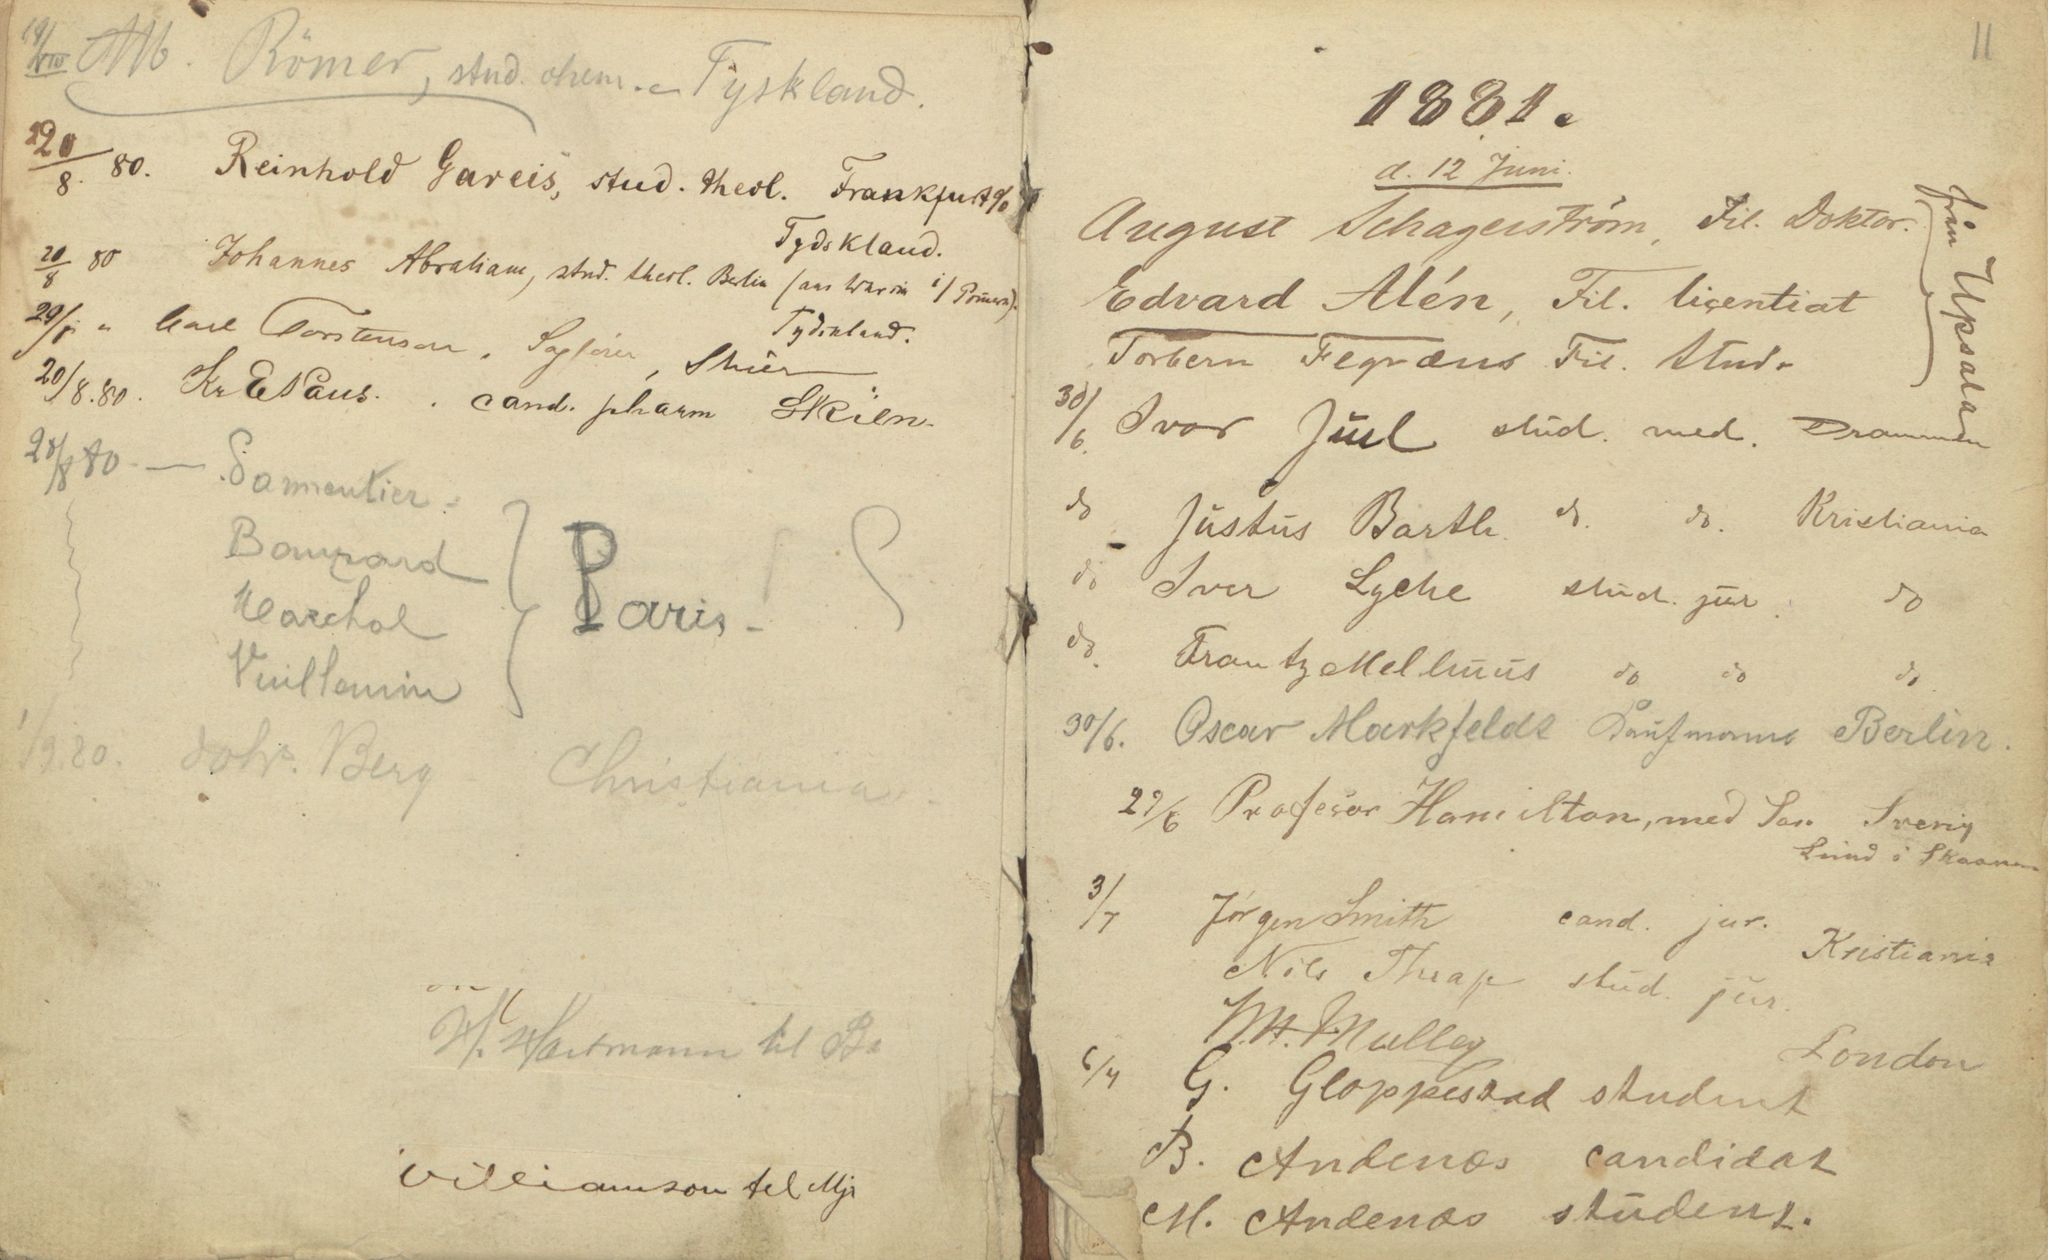 19/VIII Alb. Römer, stud. chem. Tyskland.
20/8. 80. Reinhold Gareis, stud. theol. Frankfurt a/O
Tydskland.
20/8 80 Johannes Abraham, stud. theol. Berlin (aus i/ Pomern).
Tydskland.
20/8 " Carl Torstenson. Sagfører, Skien
20/8.80. Kr Paus. cand. pharm Skien.
28/8 80 — Parmentier
Bonnard
Marchal
Vuillemin
Paris
1/9.80. Johs. Berg Christiania.
H. Hartmann til
Villiamson tel Mjr
11
1881.
d. 12 Juni.
August Schagerström, Fil. Doktor.
Edvard Alén, Fil. licentiat
Torbern Fegræus Fil. Stud.
från Upsala
30/6. Ivar Juul stud. med. Drammen
do Justus Barth do. do. Kristiania
do Iver Lyche stud. jur. do
do. Frantz Mellbuus do do do.
30/6. Oscar Markfeldt Kaufmann Berlin.
29/6 Profesor Hamilton, med Søn Sverig
Lund i Skaane
3/7 Jørgen Smith cand. jur.
Kristiania
Nils Thrap stud. jur.
London
6/7 G. Gloppestad student
B. Andenæs candidat
M. Andenæs student.